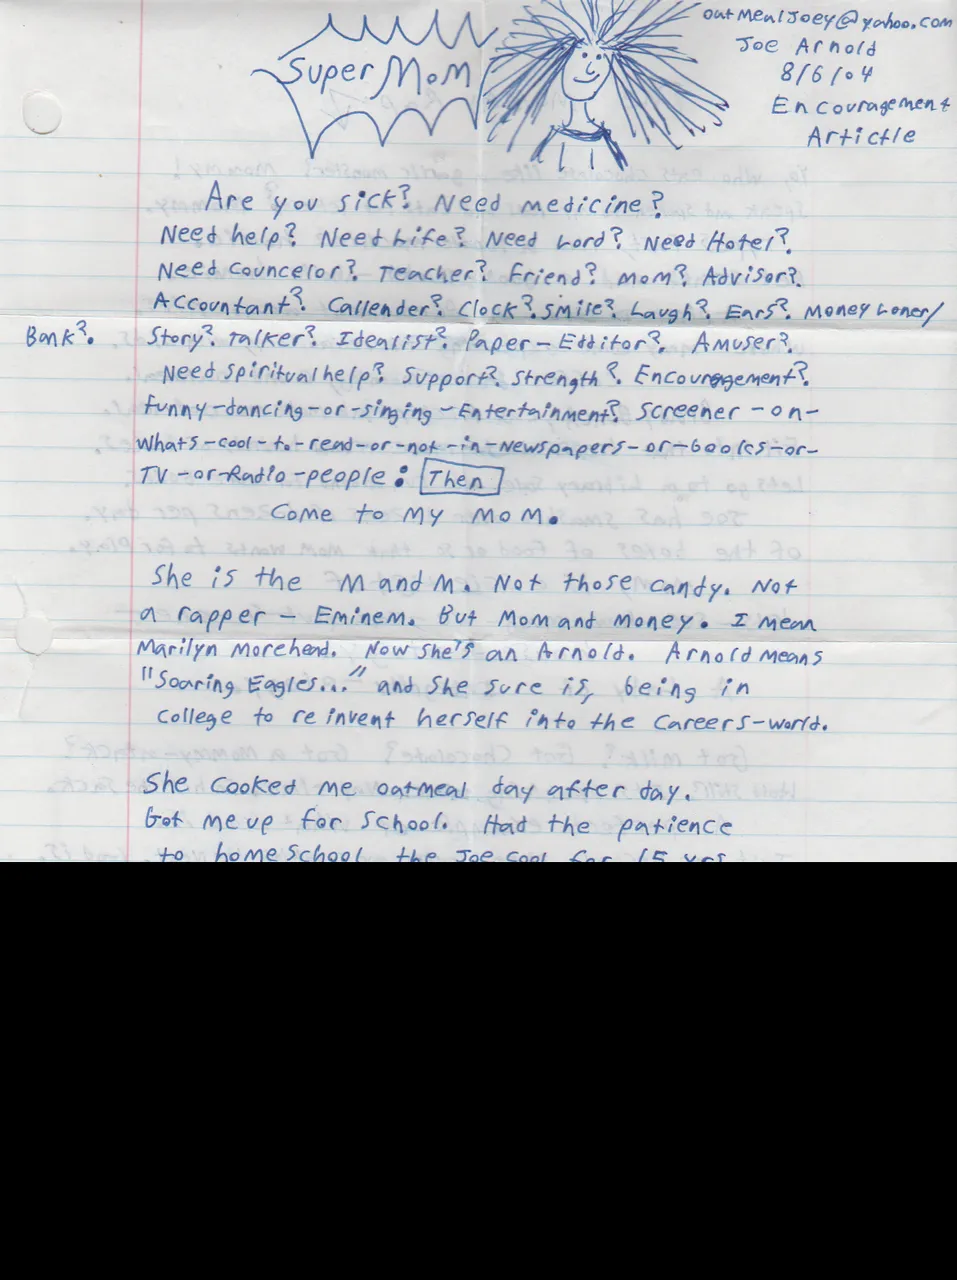 Super Mom
oatmealjoey@yahoo.com
Joe Arnold
8/6/04
Encouragement
Artictle
Are you sick? Need medicine?
Need help? Need Life? Need Lord? Need Hotel?
Need Councelor? Teacher? Friend? Mom? Advisor?
Accountant? Callender? Clock? Smile? Laugh? Ears? Money Loner/
Bank? Story? Talker? Idealist? Paper-Edditor? Amuser?
Need Spiritual help? Support? Strength? Encouragement?
Funny-dancing-or-singing-Entertainment? Screener-on-
whats-cool-to-read-or-not-in-newspapers-or-books-or-
TV-or-Radio-people: Then
Come to my mom.
She is the M and M. Not those candy. Not
a rapper - Eminem. But Mom and Money. I mean
Marilyn Morehead. Now she's an Arnold. Arnold means
"Soaring Eagles..." and she sure is, being in
college to reinvent herself into the careers-world.
She cooked me oatmeal day after day.
Got me up for school. Had the patience
to homeschool the Joe Cool for 15 yrs